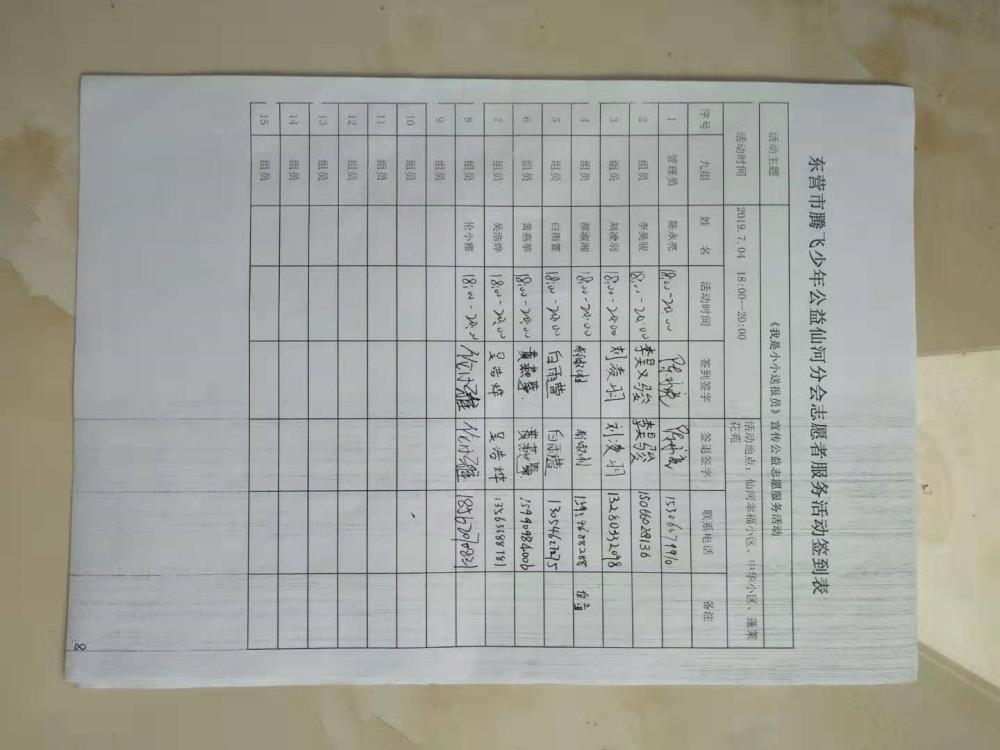 东营市腾飞少年公益仙河分会志愿者服务活动签到表
活动主题 《我是小小送报员》宣传公益志愿服务活动
活动时间 2019.7.04 18:00—20:00 活动地点：仙河幸福小区、中华小区、蓬莱花苑
序号 九组 姓 名 活动时间 签到签字 签退签字 联系电话 备注
1 管理员 陈永亮 18:00-20:00
2 组员 李昊骏 18:00-20:00 李昊骏 李昊骏 15066028136
3 组员 刘凌羽 18:00-20:00 刘凌羽 刘凌羽 13280332098
4 组员 邢淑湘 18:00-20:00
5 组员 白雨蕾 18:00-20:00 白雨蕾 白雨蕾
6 组员 黄燕筝 18:00-20:00 黄燕筝 黄燕筝 15990984006
7 组员 吴浩烨 18:00-20:00 吴浩烨 吴浩烨
8 组员 伦小雅 18:00-20:00 伦小雅 伦小雅
9 组员
10 组员
11 组员
12 组员
13 组员
14 组员
15 组员
8